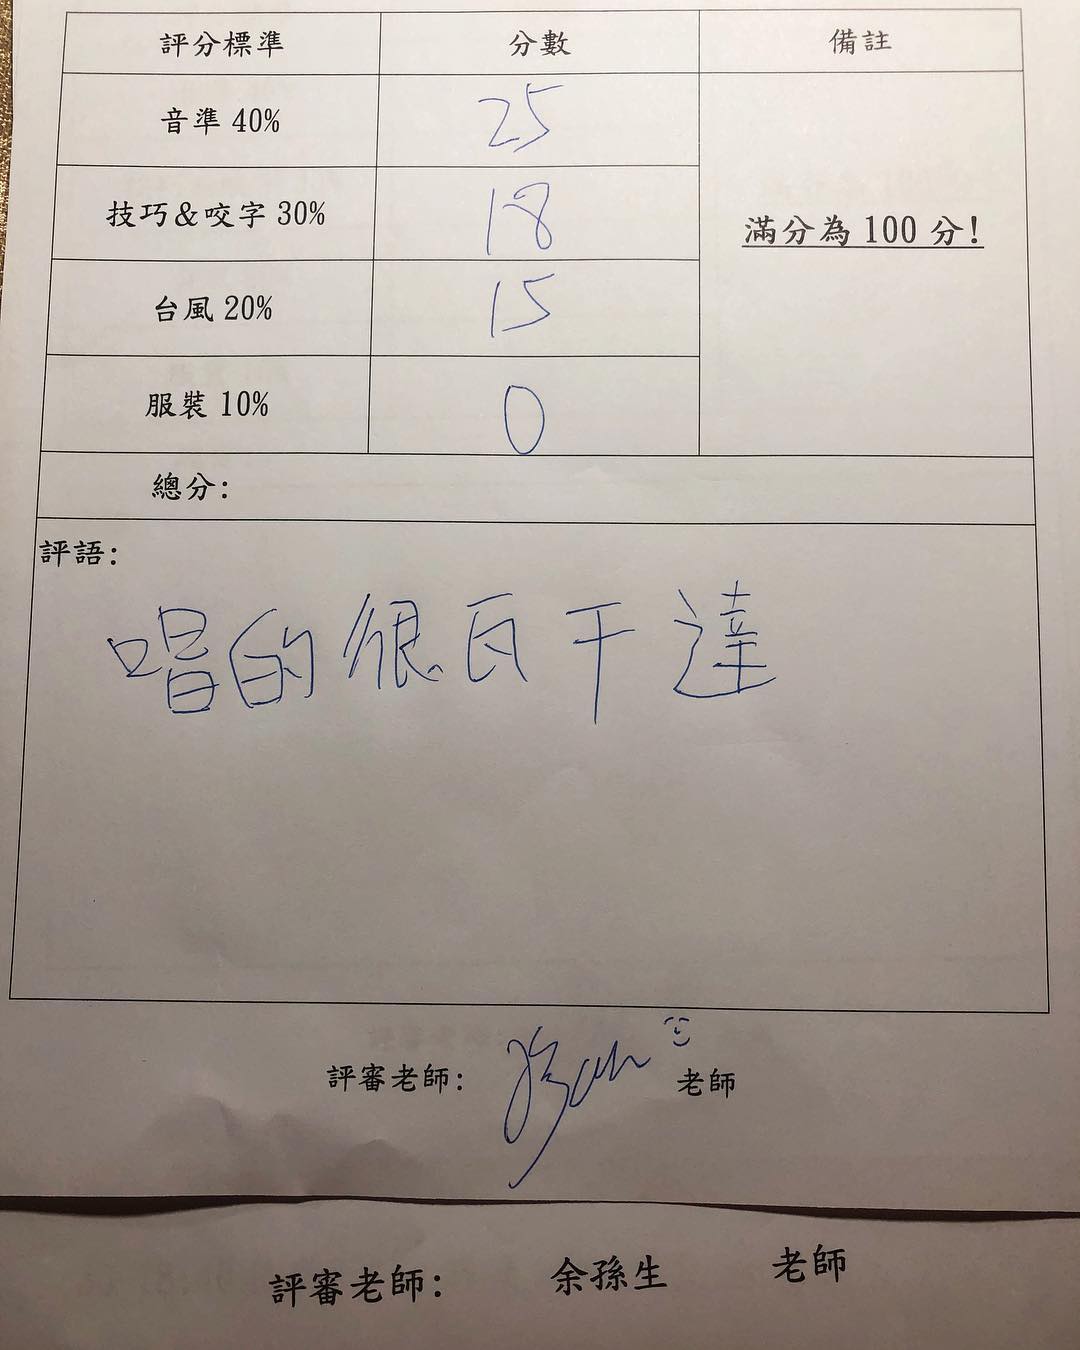 評分標準 分數 備註
音準 40% 25
技巧&咬字 30% 18
滿分為 100 分!
台風 20% 15
服裝 10% 0
總分:
評語:
唱的很瓦干達
評審老師: 老師
評審老師: 余孫生 老師